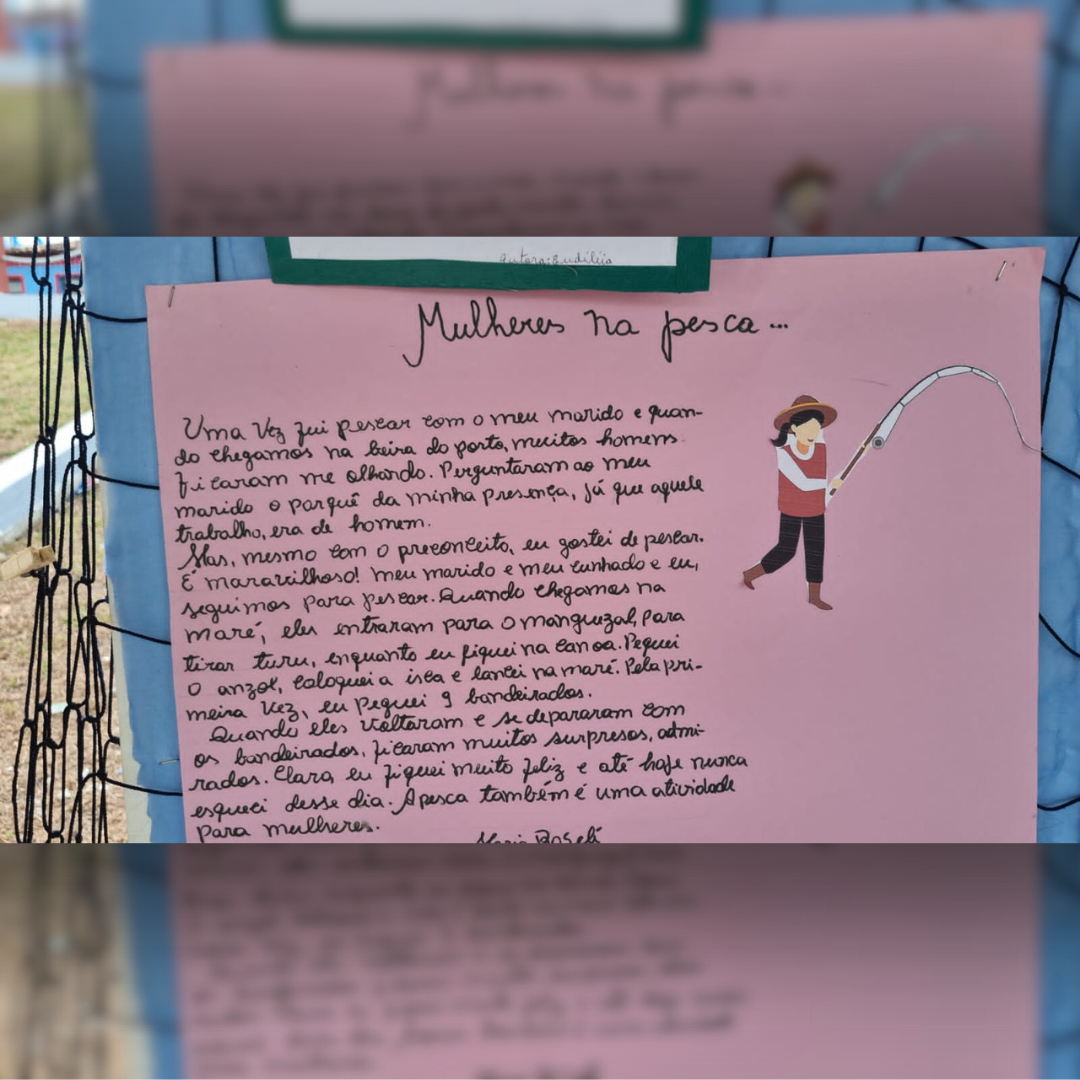 Autora: Eudiléia
Mulheres na pesca...
Uma vez fui pescar com o meu marido e quan-
do chegamos na beira do porto, muitos homens
ficaram me olhando. Perguntaram ao meu
marido o porquê da minha presença, já que aquele
trabalho, era de homem.
Mas, mesmo com o preconceito, eu gostei de pescar.
É maravilhoso! meu marido e meu cunhado e eu,
seguimos para pescar. Quando chegamos na
maré, eles entraram para o manguezal, para
tirar turu, enquanto eu fiquei na canoa. Peguei
o anzol, coloquei a isca e lancei na maré. Pela pri-
meira vez, eu peguei 9 bandeirados.
Quando eles voltaram e se depararam com
os bandeirados, ficaram muitos surpresos, admi-
rados. Claro, eu fiquei muito feliz e até hoje nunca
esqueci desse dia. A pesca também é uma atividade
para mulheres.
Maria Roseli